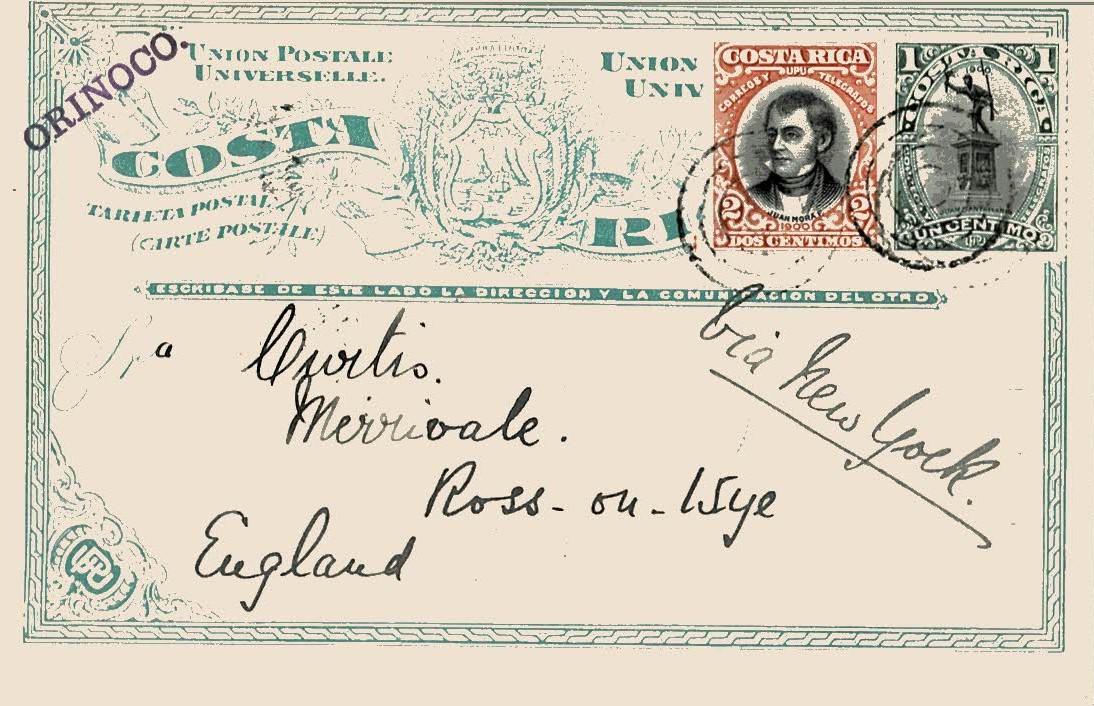 ORINOCO.
UNION POSTALE
UNIVERSELLE.
UNION
UNIV
COSTA
RI
TARJETA POSTAL
(CARTE POSTALE)
COSTA RICA
CORREOS Y UPU TELEGRAFOS
2 2
JUAN MORA
1900
DOS CENTIMOS
1 1
UN CENTIMO
ESCRIBASE DE ESTE LADO LA DIRECCION Y LA COMUNICACION DEL OTRO
via New York.
Curtis.
Merrivale.
Ross-on-Wye
England